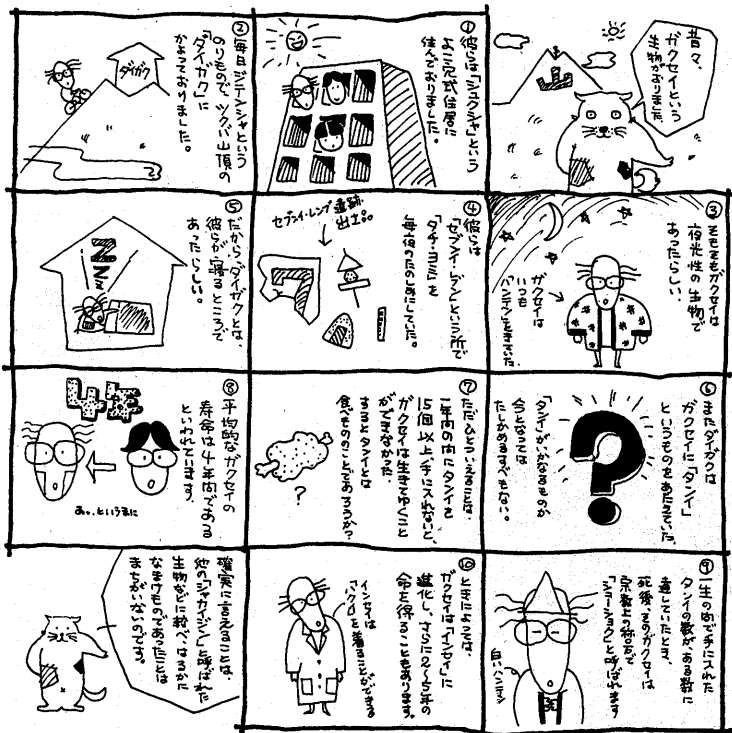 昔々、
ガクセイという
生物がおりました。
①彼らは「シュクシャ」という
よこ穴式住居に
住んでおりました。
②毎日ジテンシャという
のりもので、ツクバ山頂の
「ダイガク」に
かよっておりました。
ダイガク
③そもそもガクセイは
夜光性の生物で
あったらしい。
ガクセイは
いつも
「ハンテン」をきていた。
④彼らは
「セブンイレブン」という所で
「タチ・ヨミ」を
毎夜のたのしみにしていた。
セブンイ・レブン遺跡
出土品
⑤だから、ダイガクとは、
彼らが寝るところで
あったらしい。
⑥またダイガクは
ガクセイに「タンイ」
というものをあたえていた。
「タンイ」がいかなるものか
今となっては
たしかめるすべもない。
?
⑦ただひとついえることは、
1年間の内にタンイを
15個以上手に入れないと、
ガクセイは生きてゆくこと
ができなかった
するとタンイとは
食べもののことであろうか?
?
⑧平均的なガクセイの
寿命は4年間である
といわれています。
4年
あっ、というまに
⑨一生の内で手に入れた
タンイの数が、ある数に
達していたとき、
死後、そのガクセイは
宗教上の称号で
「シューショク」と呼ばれます
白いハンテン
⑩ときによっては、
ガクセイは「インセイ」に
進化し、さらに2〜5年の
命を得ることもあります。
インセイは
「ハクイ」を着ることができる
確実に言えることは、
他の「シャカイジン」と呼ばれた
生物などに較べはるかに
なまけものであったことは
まちがいないのです。